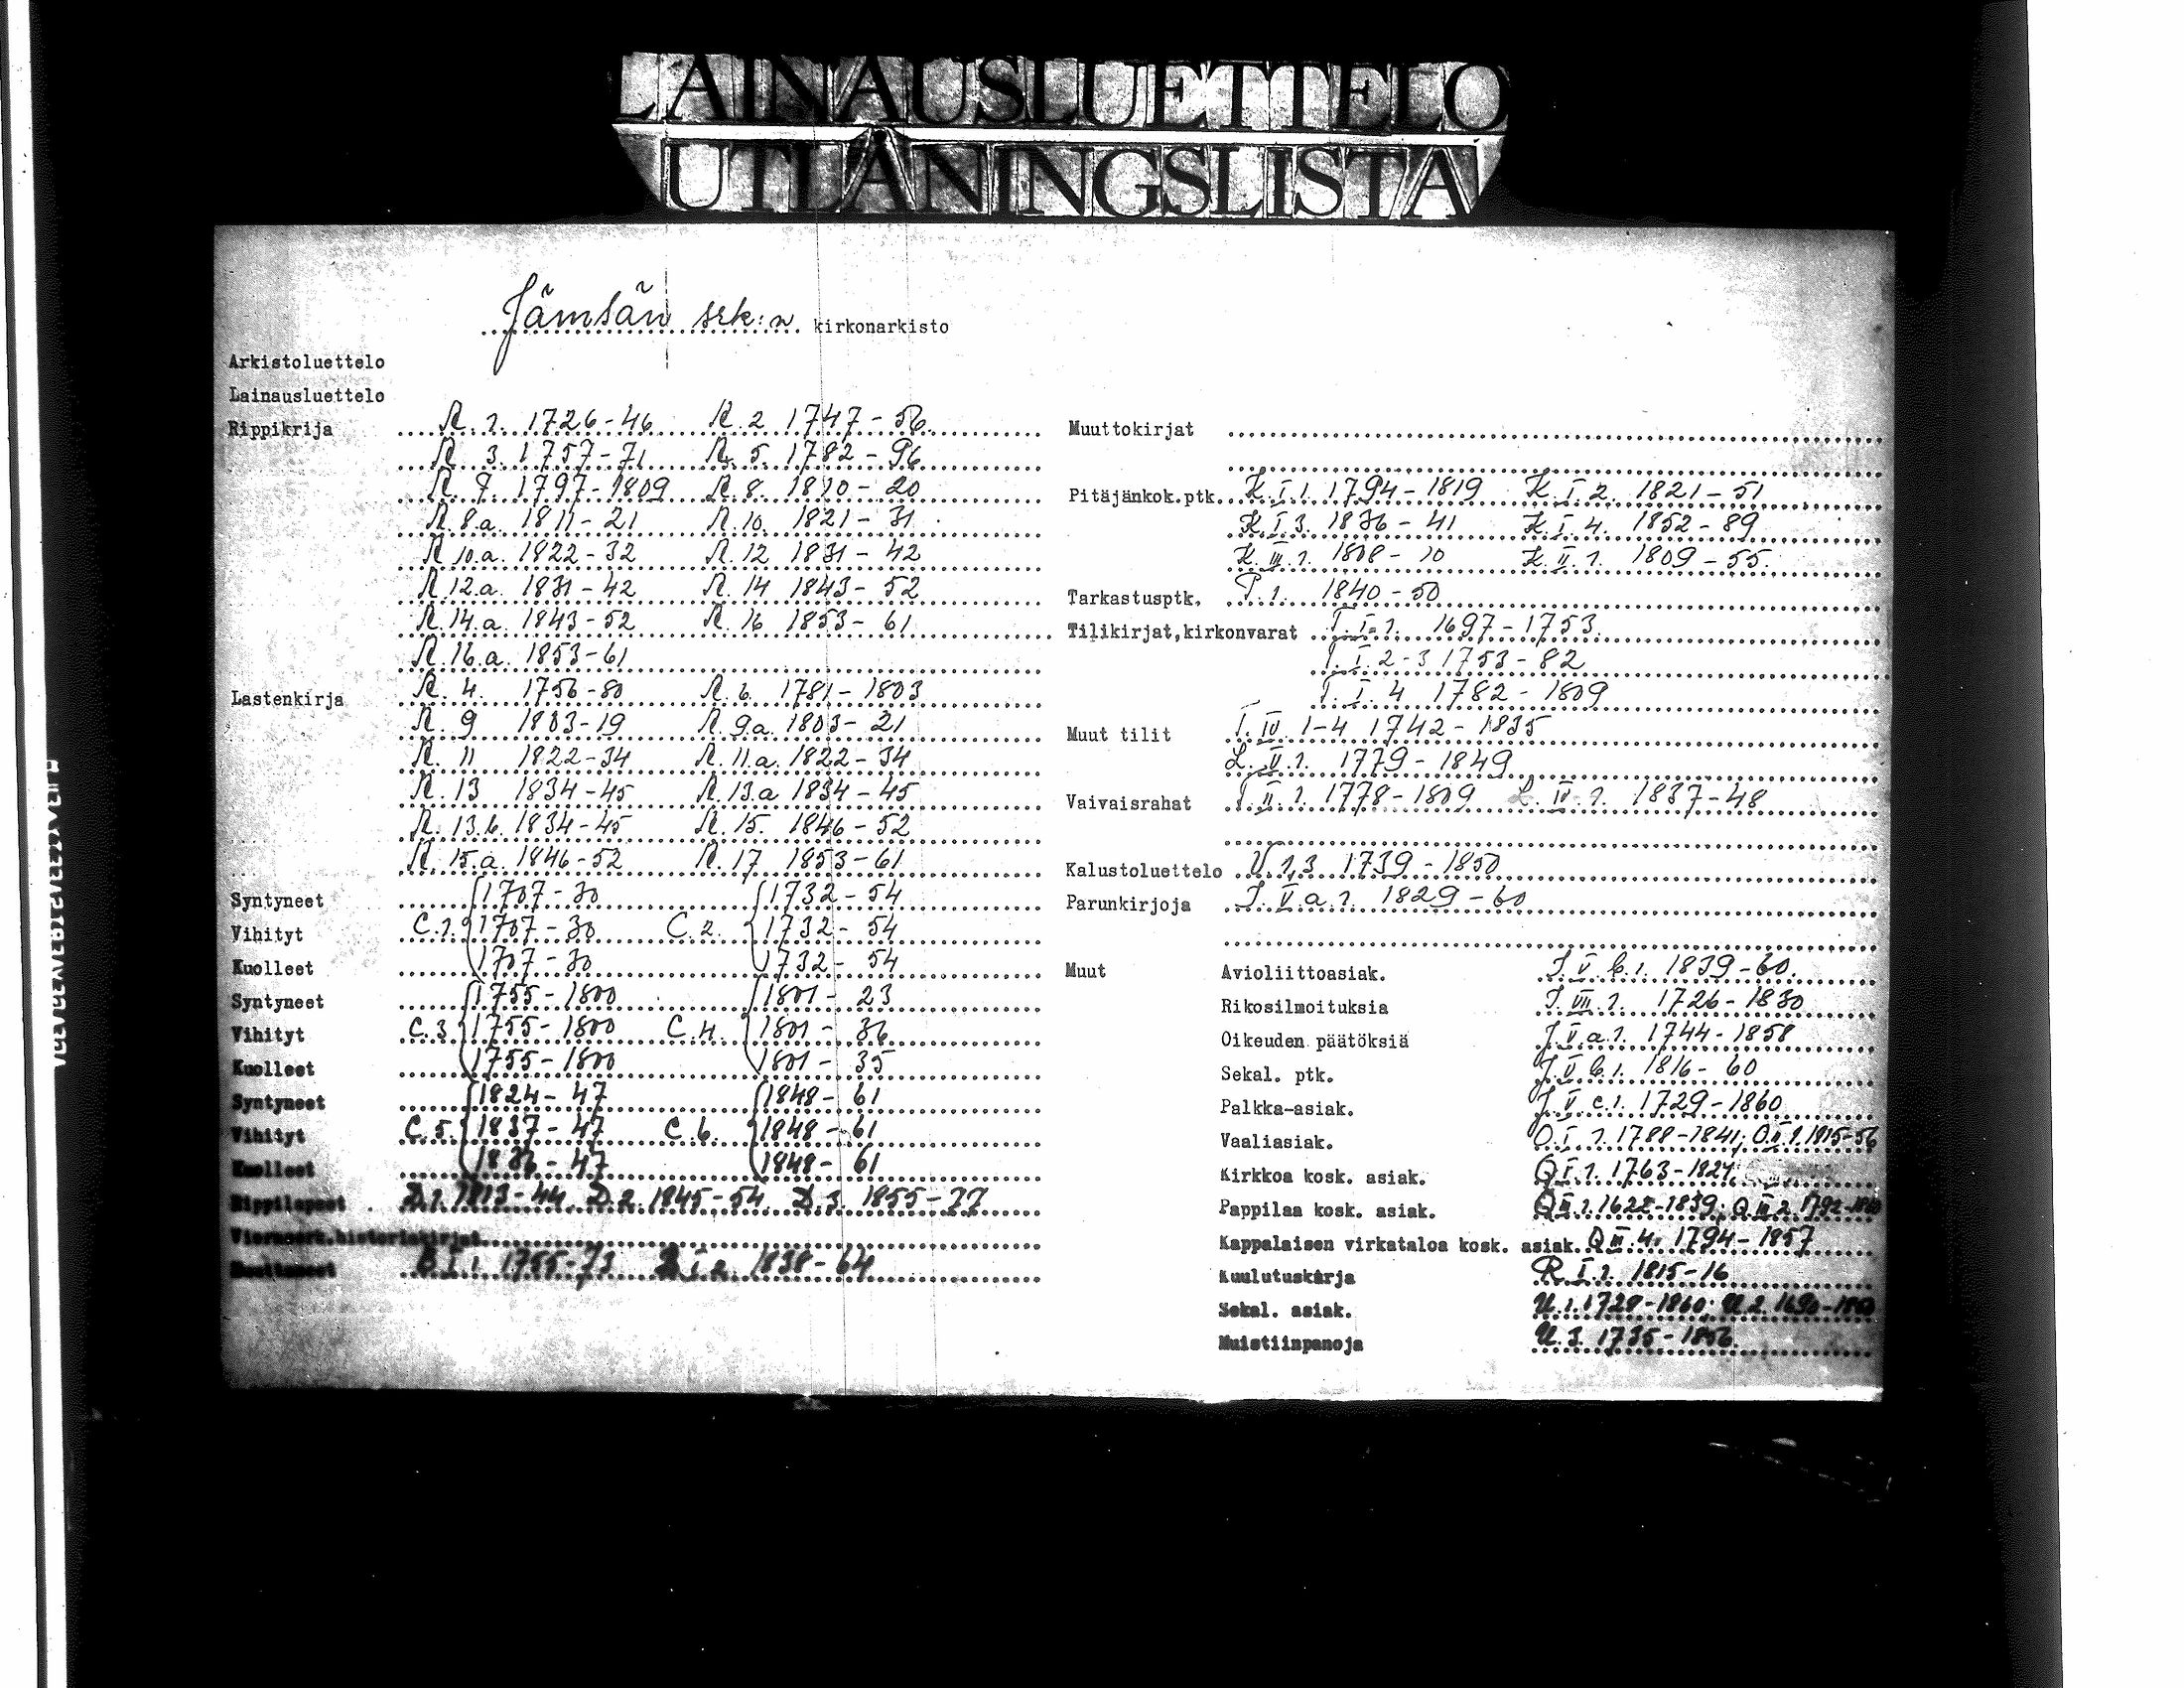 LAINAUSLUETTELO
UTLÅNINGSLISTA
Jämsän srk:n kirkonarkisto
Arkistoluettelo
Lainausluettelo
Rippikrija R. 1. 1726-46 R. 2 1747-56
R. 3. 1757-71 R. 5. 1782-96
R. 7. 1797-1809 R. 8. 1810-20
R. 8.a. 1811-21 R. 10. 1821-31
R 10.a. 1822-32 R. 12 1831-42
R.12.a. 1831-42 R. 14 1843-52
R.14.a. 1843-52 R. 16 1853-61
R.16.a. 1853-61
Lastenkirja R. 4. 1756-80 R. 6. 1781-1803
R. 9 1803-19 R. 9.a. 1803-21
R. 11 1822-34 R. 11.a. 1822-34
R. 13 1834-45 R. 13.a 1834-45
R. 13.b. 1834-45 R. 15. 1846-52
R. 15.a. 1846-52 R. 17 1853-61
Syntyneet 1707-30 1732-54
Vihityt C.1. 1707-30 C.2. 1732-54
Kuolleet 1707-30 1732-54
Syntyneet 1755-1800 1801-23
Vihityt C.3 1755-1800 C.4. 1801-36
Kuolleet 1755-1800 1801-35
Syntyneet 1824-47 1848-61
Vihityt C.5. 1837-47 C.6. 1848-61
Kuolleet 1836-47 1848-61
Rippilapset D.1. 1813-44 D.2. 1845-54 D.3. 1855-77
Vieraserk.historiakirjat
Muuttaneet B.I.1 1755-73 B.I.2. 1838-64
Muuttokirjat
Pitäjänkok.ptk. K.I.1. 1794-1819 K.I.2. 1821-51
K.I.3. 1836-41 K.I.4. 1852-89
K.III.1. 1808-10 K.II.1. 1809-55.
Tarkastusptk. P.1. 1840-50
Tilikirjat,kirkonvarat T.I.1. 1697-1753.
T.I.2-3 1753-82
T.I.4 1782-1809
Muut tilit T.IV. 1-4 1742-1835
L.V.1. 1779-1849
Vaivaisrahat T.II.1. 1778-1809 L.IV.1. 1837-48
Kalustoluettelo V.1,3 1739-1850
Parunkirjoja I.V.a.1. 1829-60
Muut Avioliittoasiak. I.V.b.1. 1839-60.
Rikosilmoituksia I.VII.1. 1726-1830
Oikeuden päätöksiä J.V.a.1. 1744-1858
Sekal. ptk. J.V.b.1. 1816-60
Palkka-asiak. J.V.c.1. 1729-1860
Vaaliasiak. O.I.1. 1788-1841; O.II.1. 1815-56
Kirkkoa kosk. asiak. Q.I.1. 1763-1824;
Pappilaa kosk. asiak. Q.II.1. 1622-1839; Q.II.2. 1792-1860
Kappalaisen virkataloa kosk. asiak. Q.III.4. 1794-1857
Kuulutuskirja R.I.1. 1815-16
Sekal. asiak. U.1. 1728-1860; U.2. 1690-1860
Muistiinpanoja U.3. 1735-1856